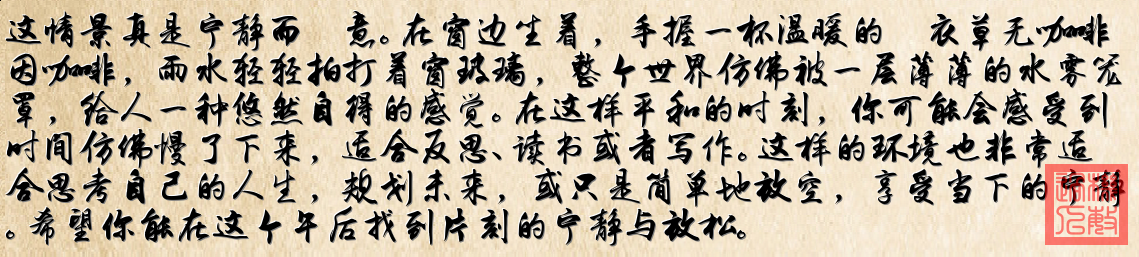 这情景真是宁静而 意。在窗边坐着，手握一杯温暖的 衣草无咖啡
因咖啡，雨水轻轻拍打着窗玻璃，整个世界仿佛被一层薄薄的水雾笼
罩，给人一种悠然自得的感觉。在这样平和的时刻，你可能会感受到
时间仿佛慢了下来，适合反思、读书或者写作。这样的环境也非常适
合思考自己的人生，规划未来，或只是简单地放空，享受当下的宁静
。希望你能在这个午后找到片刻的宁静与放松。